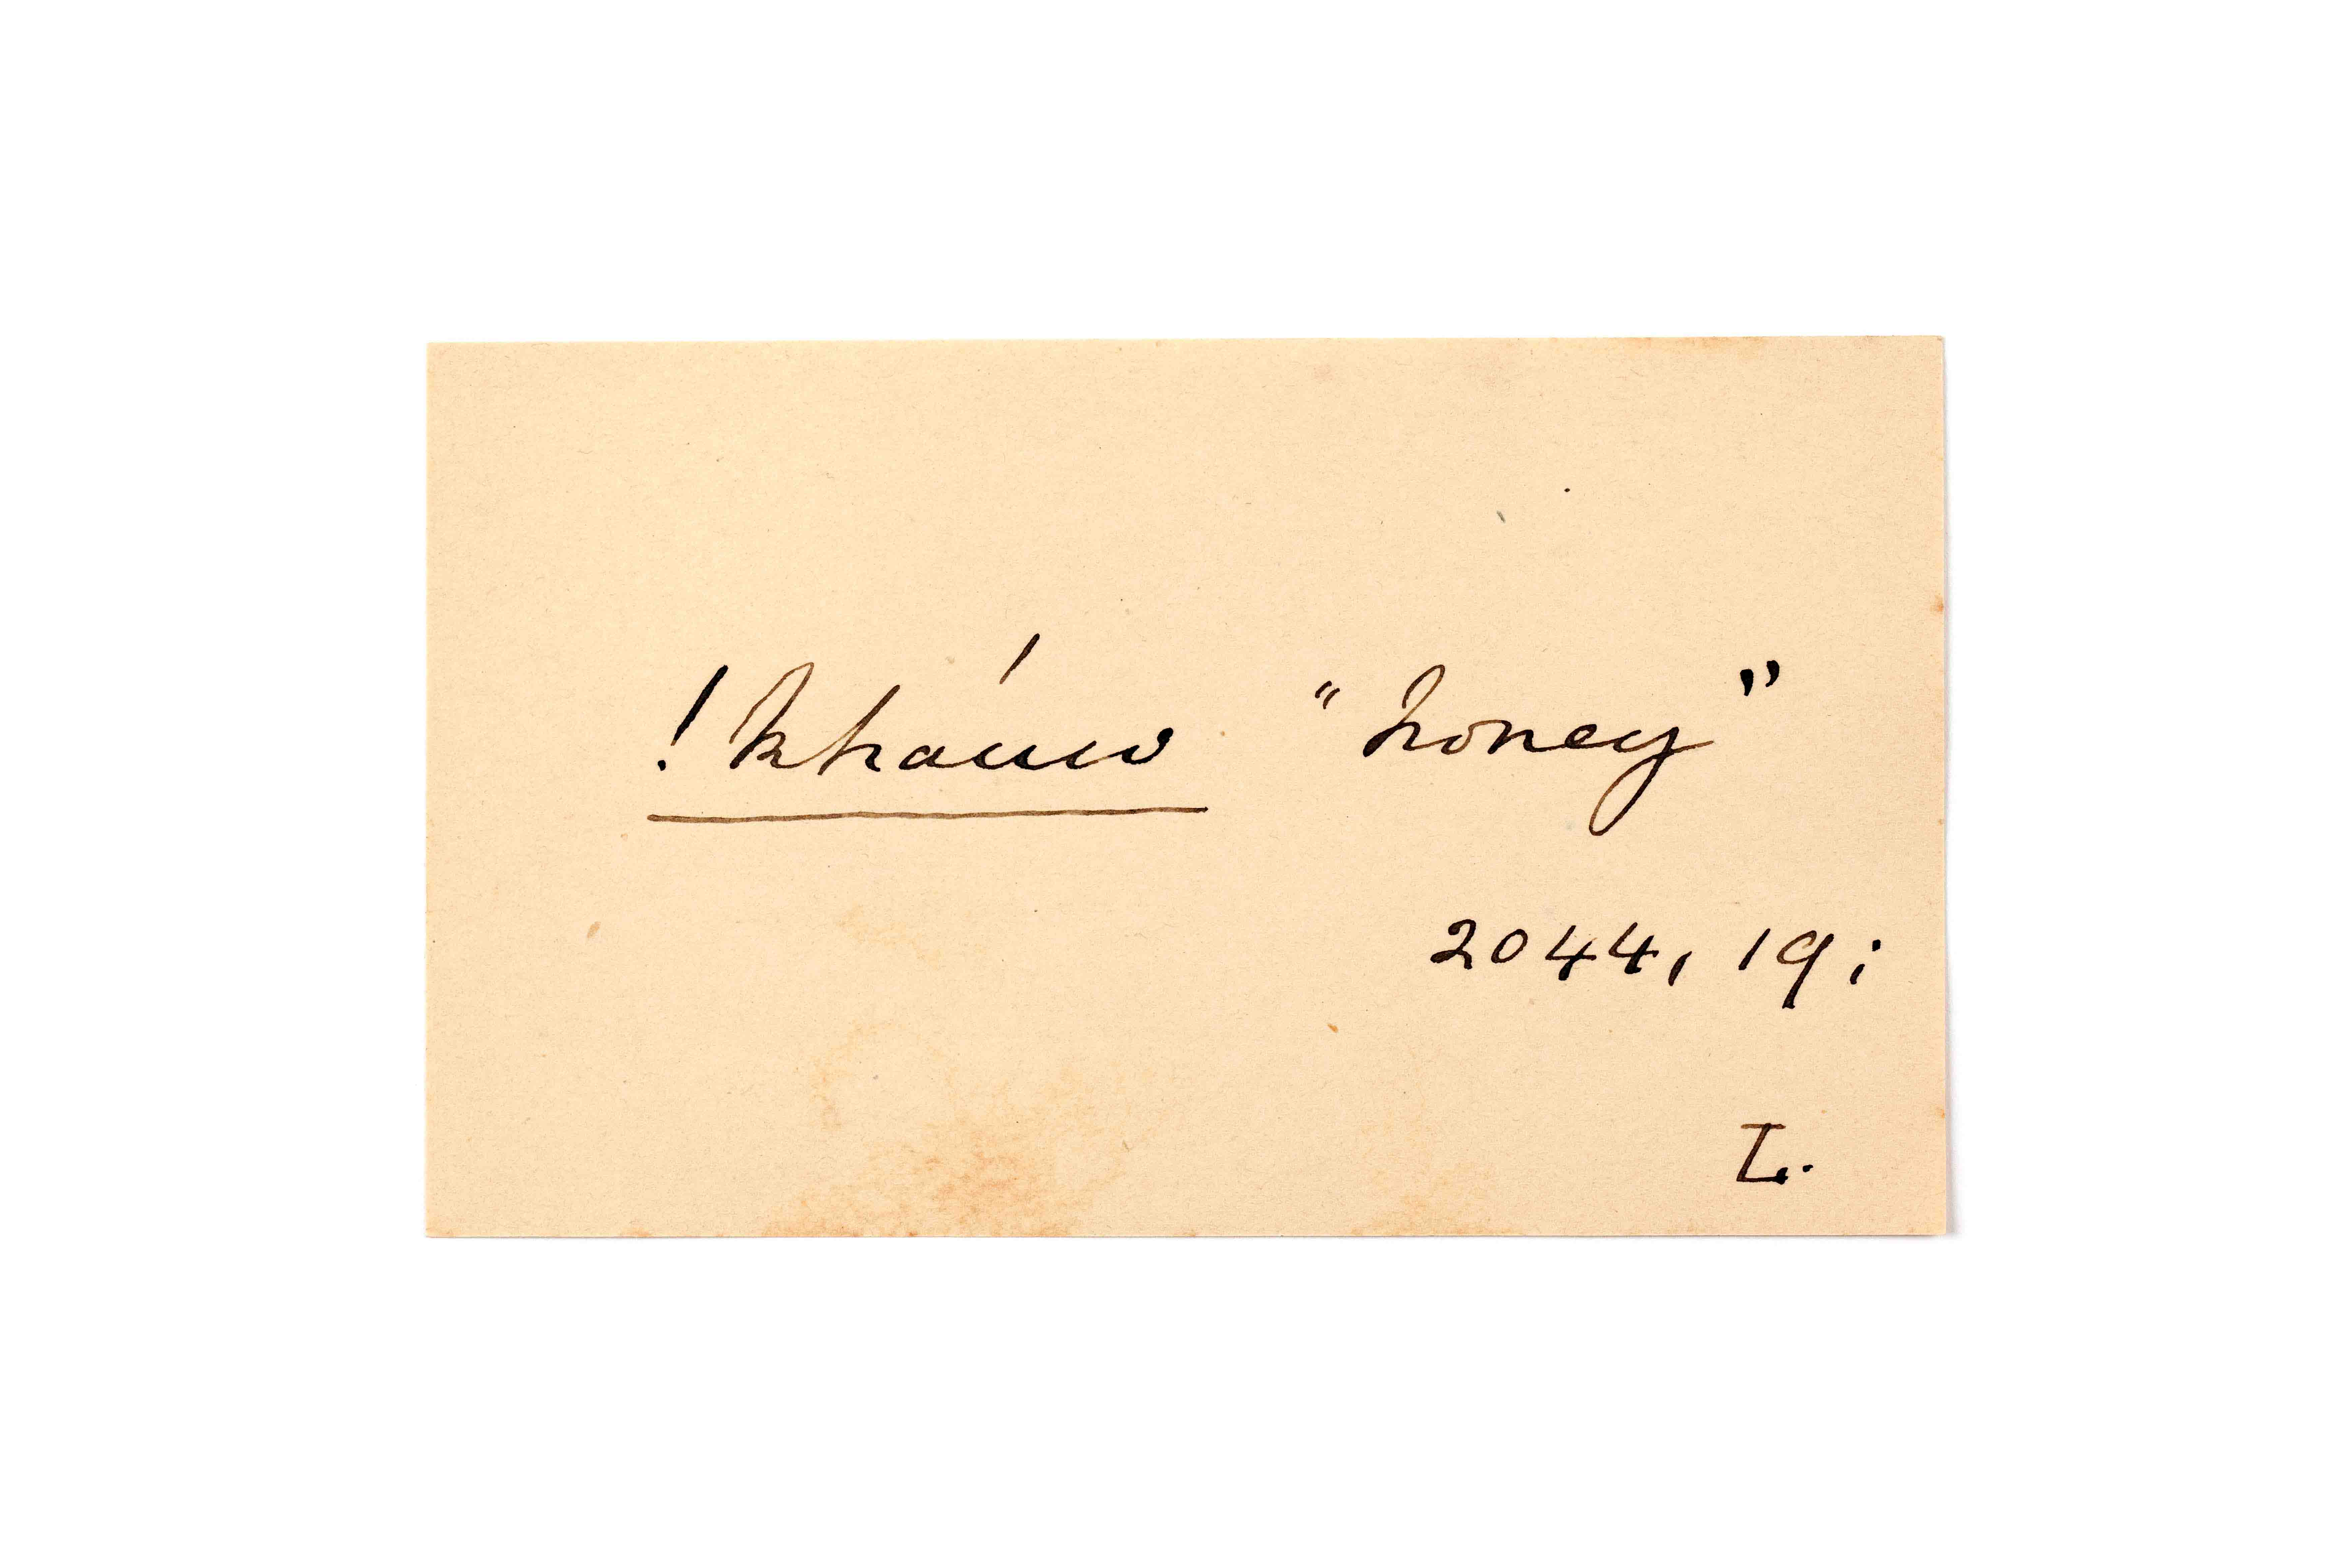 !kháuw “honey”
2044, 19;
L.